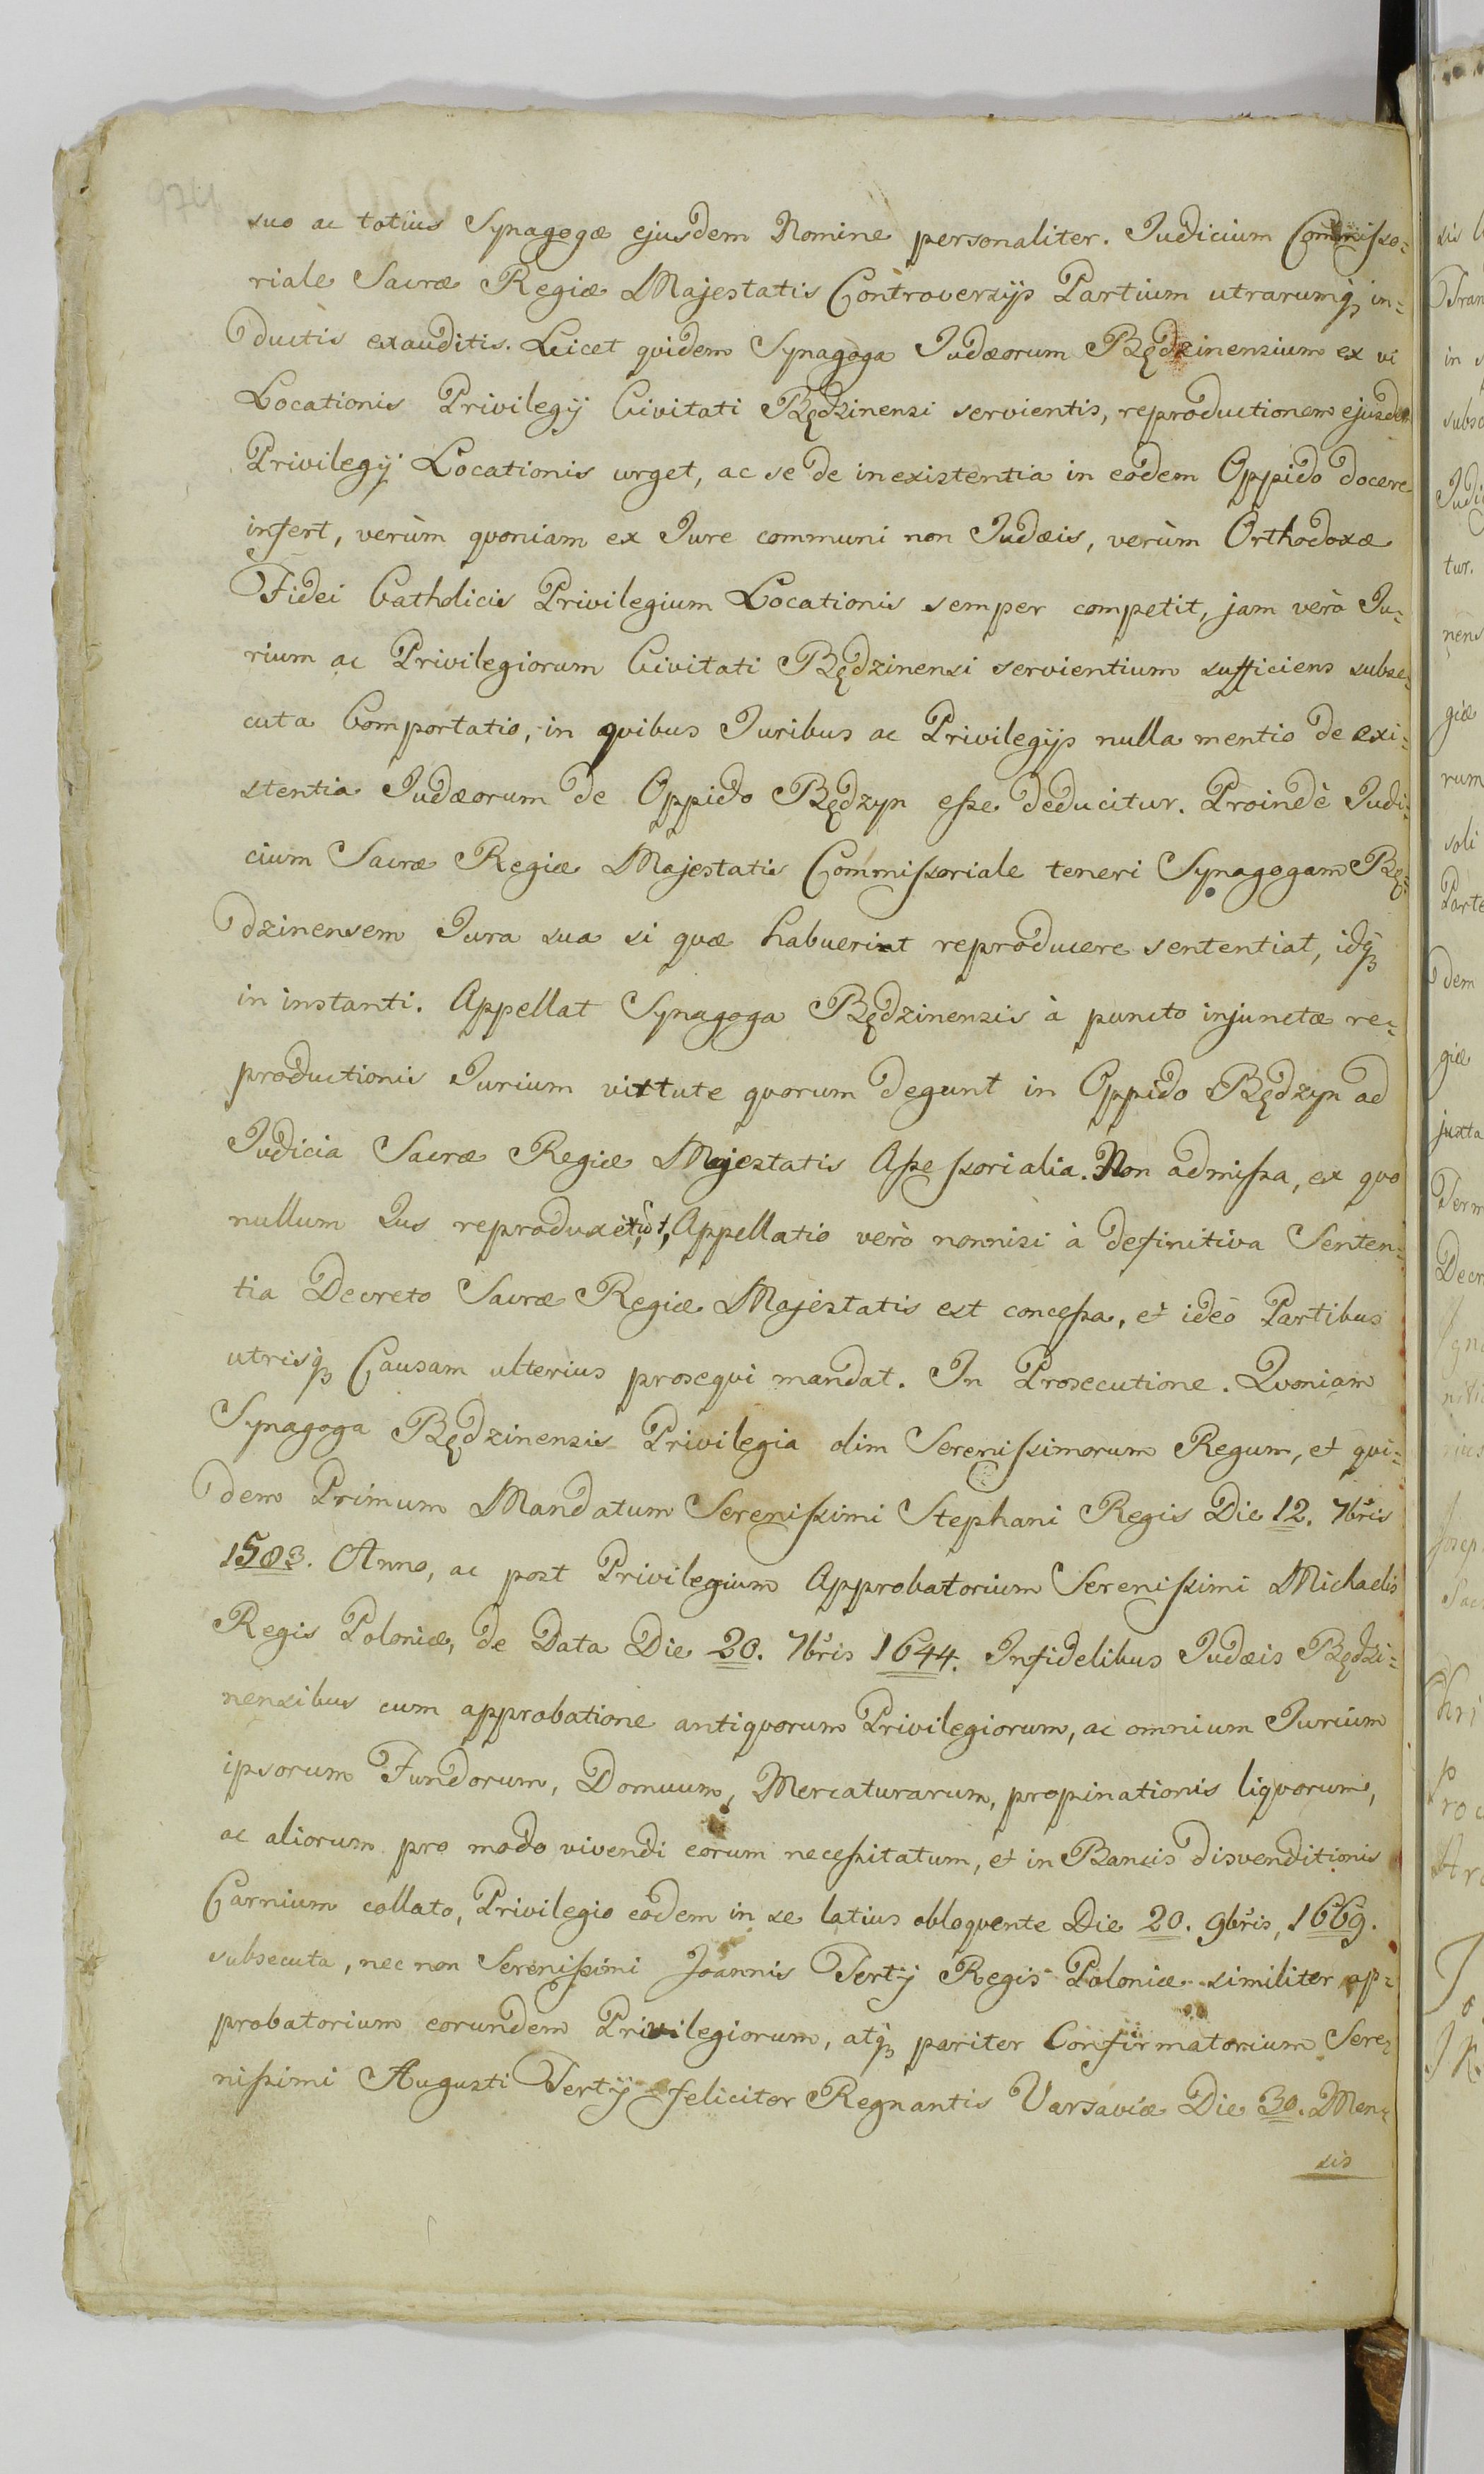 974
suo ac totius Synagogæ ejusdem Nomine personaliter. Judicium Commisso-
riale Sacræ Regiæ Majestatis Controversijs Partium utrarumq; in-
ductis exauditis. Licet quidem Synagoga Judæorum Będzinensium ex vi
Locationis Privilegij Civitati Będzinensi servientis, reproductionem ejusdem
Privilegij Locationis urget, ac se de inexistentia in eodem Oppido docere
infert, verùm quoniam ex Jure communi non Judæis, verùm Orthodoxæ
Fidei Catholicis Privilegium Locationis semper competit, jam verò Ju-
rium ac Privilegiorum Civitati Będzinensi servientium sufficiens subse-
cuta Comportatio, in quibus Juribus ac Privilegijs nulla mentio de exi-
stentia Judæorum de Oppido Będzyn esse deducitur. Proindè Judi-
cium Sacræ Regiæ Majestatis Commissoriale teneri Synagogam Bę-
dzinensem Jura sua si quæ habuerint reproducere sententiat, idq;
in instanti. Appellat Synagoga Będzinensis à puncto injunctæ re-
productionis Jurium virtute quorum degunt in Oppido Będzyn ad
Judicia Sacræ Regiæ Majestatis Assessorialia. Non admissa, ex quo
nullum Jus reproduxit, Appellatio verò nonnisi à definitiva Senten-
tia Decreto Sacræ Regiæ Majestatis est concessa, et ideò Partibus
utrisq; Causam ulterius prosequi mandat. In Prosecutione. Quoniam
Synagoga Będzinensis Privilegia olim Serenissimorum Regum, et qui-
dem Primum Mandatum Serenissimi Stephani Regis Die 12. 7bris
1583. Anno, ac post Privilegium Approbatorium Serenissimi Michaelis
Regis Poloniæ, de Data Die 20. 7bris 1644. Infidelibus Judæis Będzi-
nensibus cum approbatione antiquorum Privilegiorum, ac omnium Jurium
ipsorum Fundorum, Domuum, Mercaturarum, propinationis liquorum,
ac aliorum pro modo vivendi eorum necessitatum, et in Bancis disvenditionis
Carnium collato, Privilegio eodem in se latius obloquente Die 20. 9bris, 1669.
subsecuta, nec non Serenissimi Joannis Tertij Regis Poloniæ similiter ap-
probatorium eorundem Privilegiorum, atq; pariter Confirmatorium Sere-
nissimi Augusti Tertij feliciter Regnantis Varsaviæ Die 30. Men-
sis